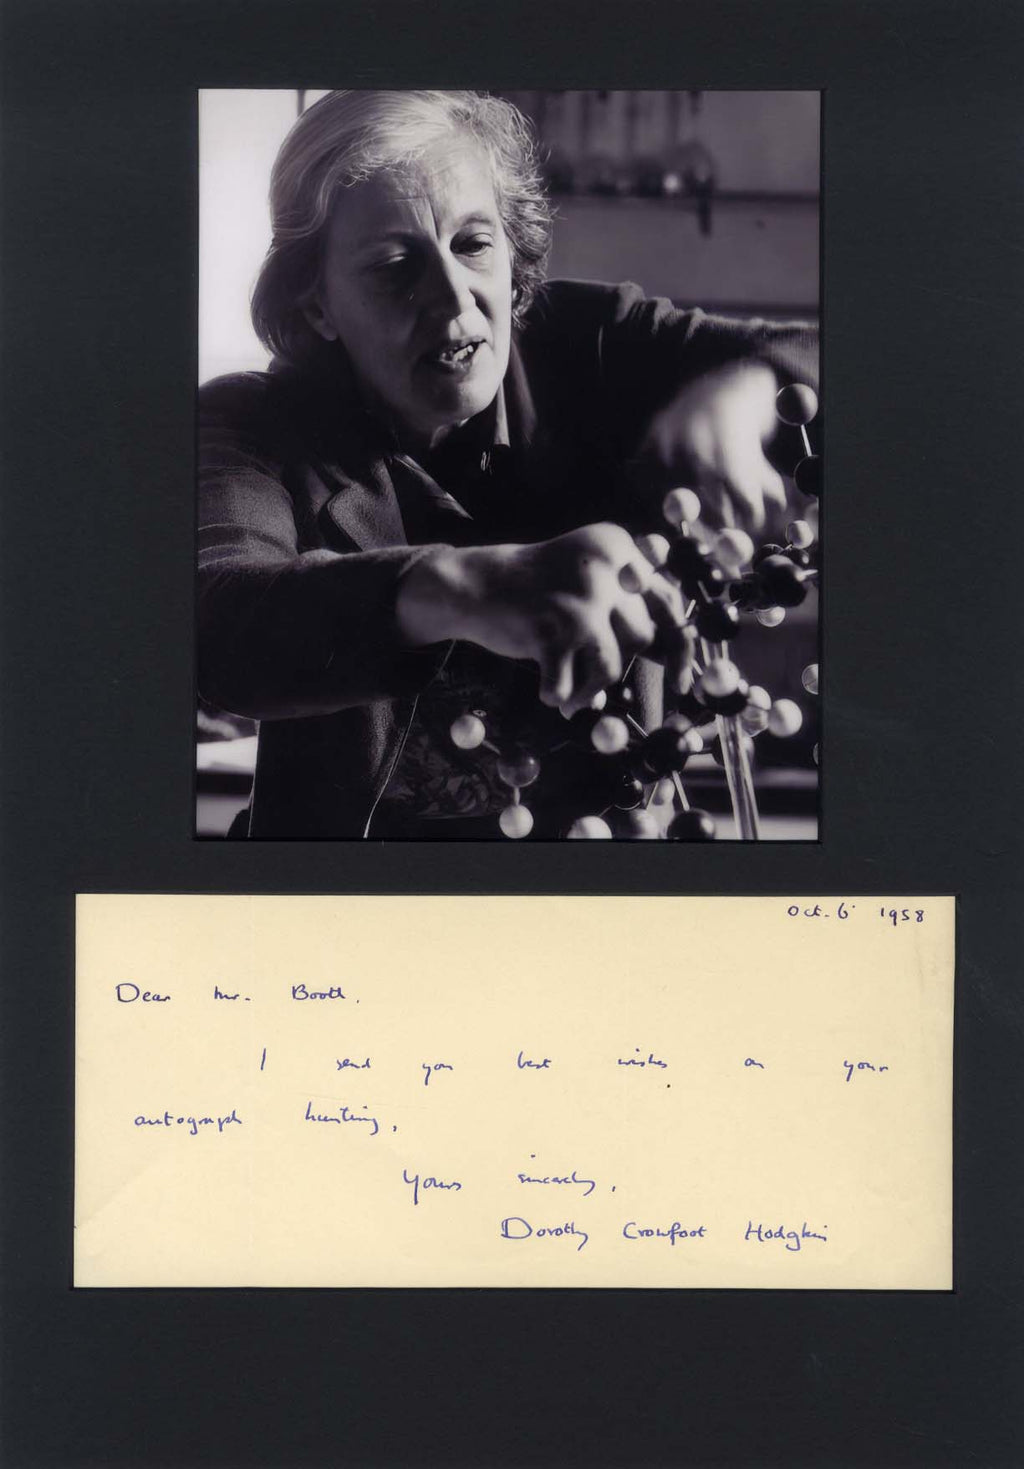 Oct. 6 1958
Dear Mr. Booth.
I send you best wishes on your
autograph hunting,
Yours sincerely,
Dorothy Crowfoot Hodgkin